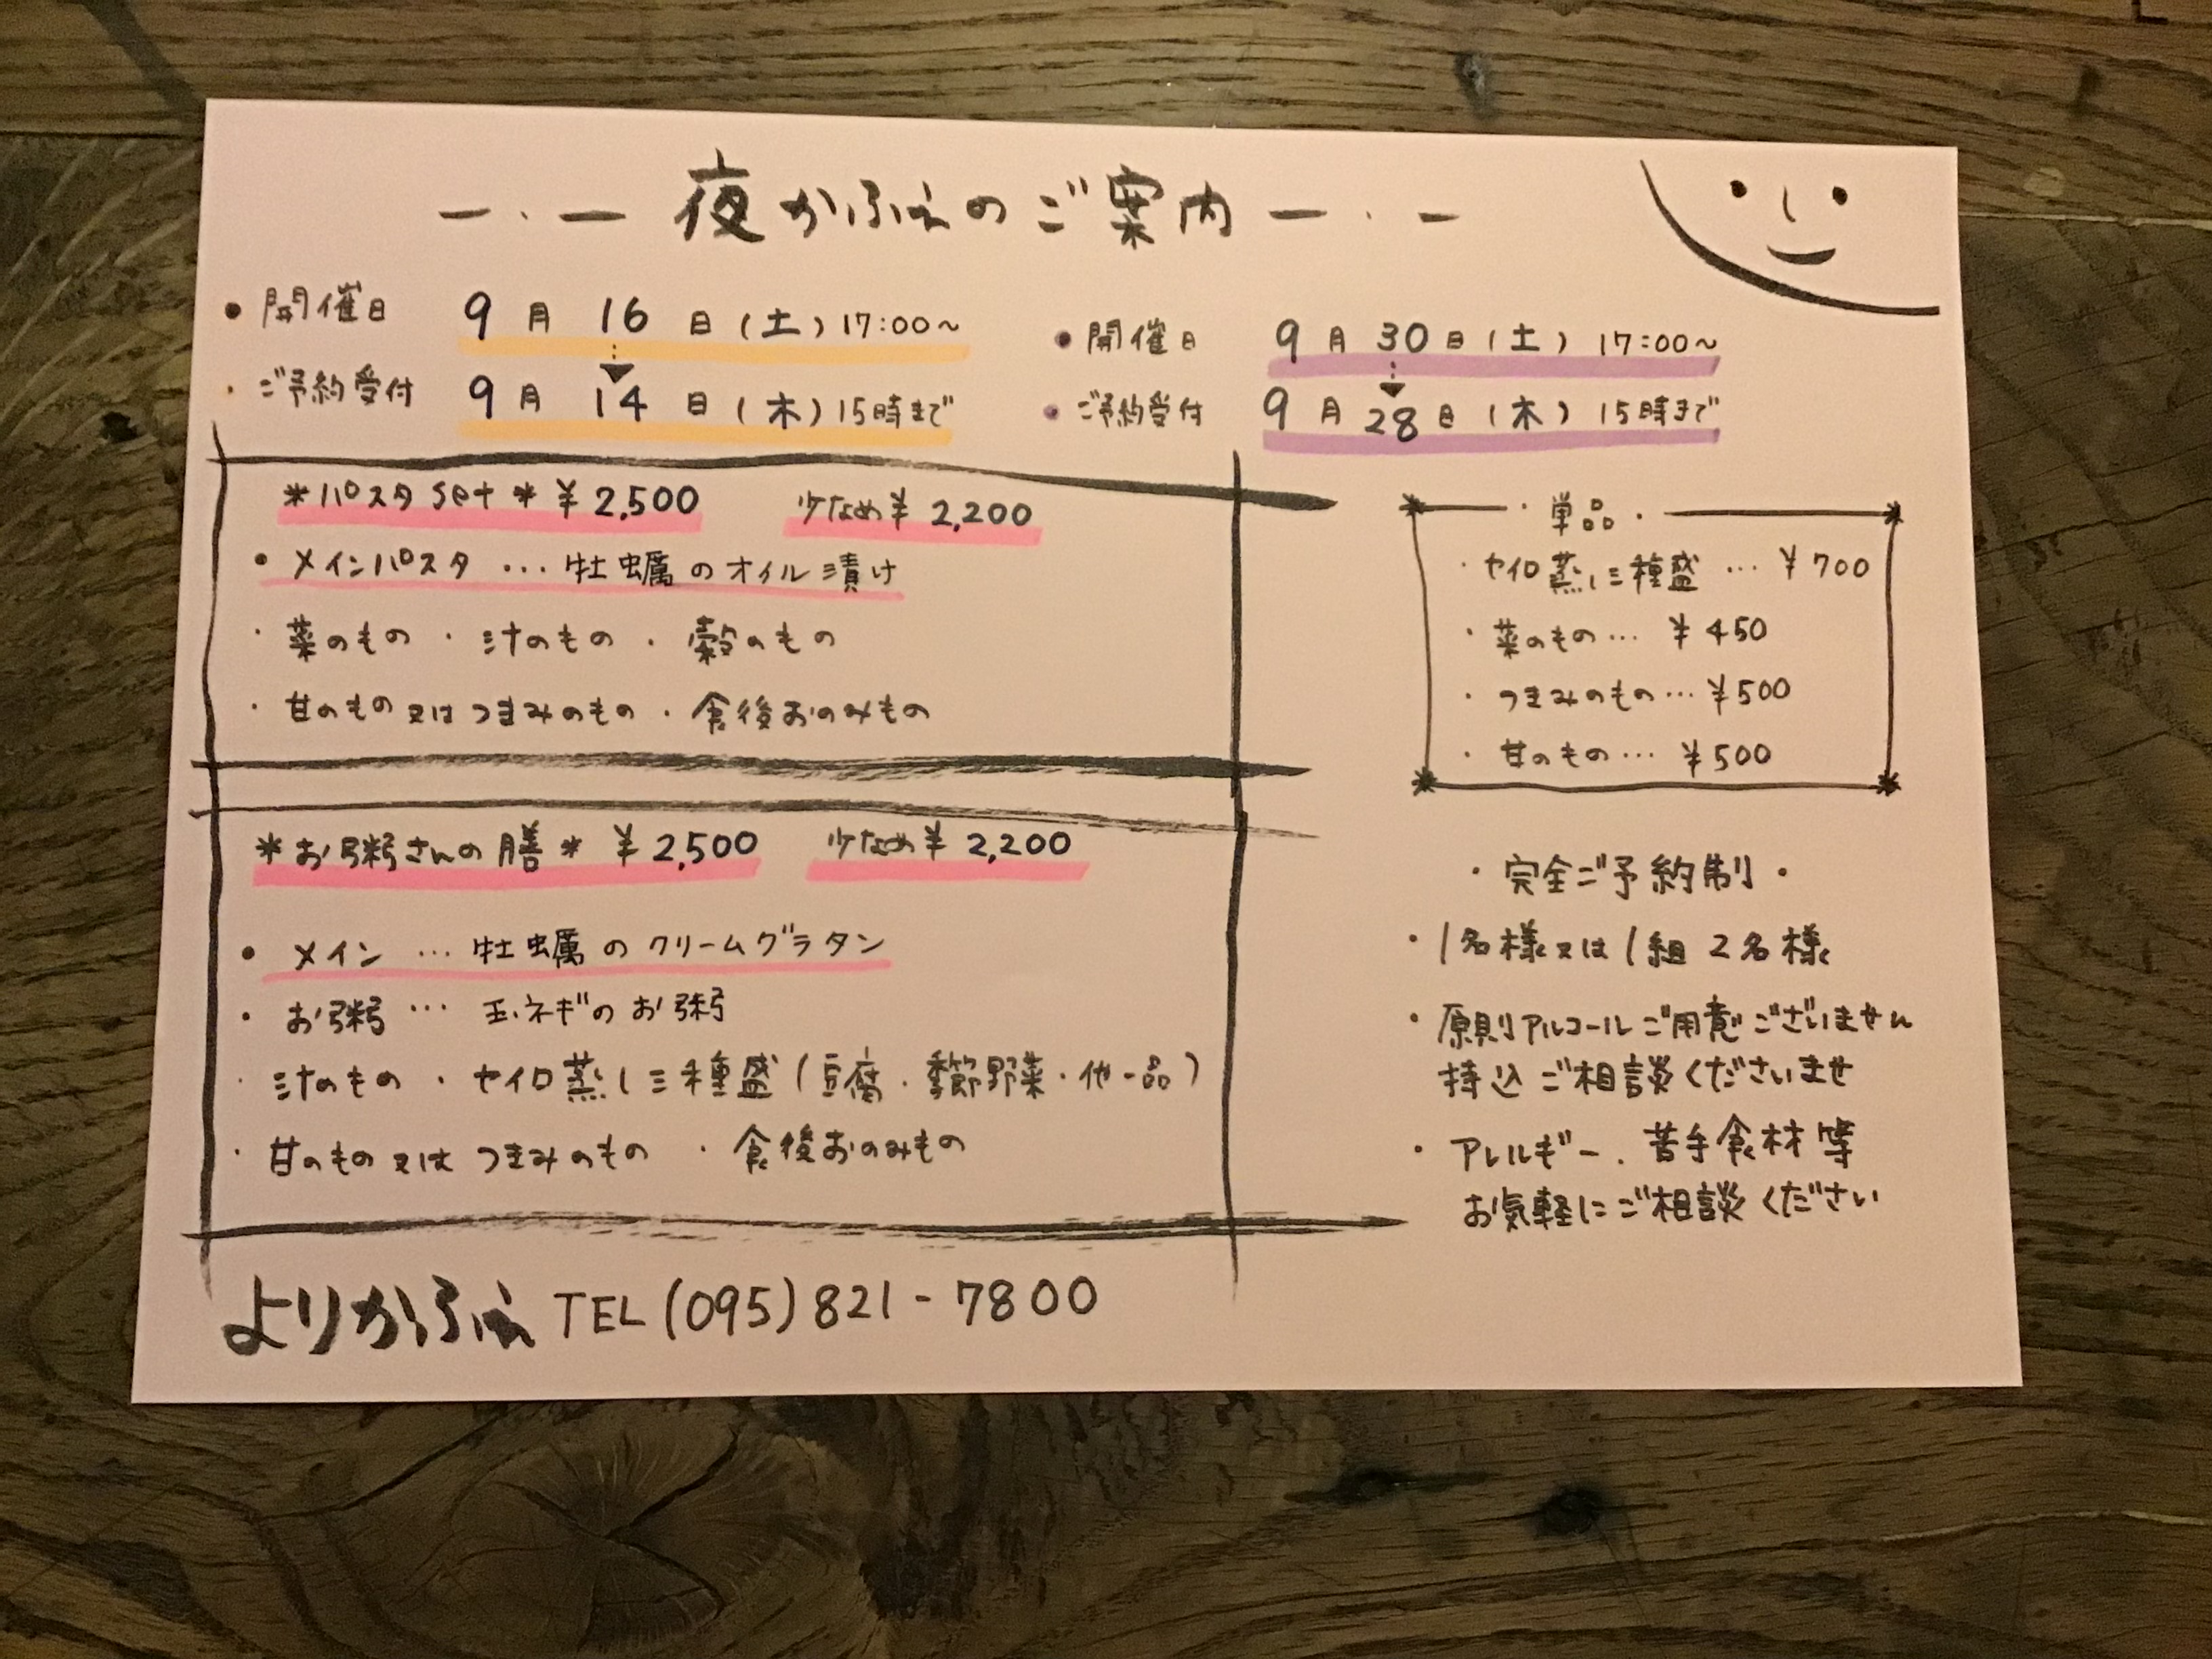 夜かふぇのご案内
・開催日 9月16日(土)17:00～
・ご予約受付 9月14日(木)15時まで
・開催日 9月30日(土)17:00～
・ご予約受付 9月28日(木)15時まで
*パスタset* ¥2,500 少なめ¥2,200
・メインパスタ…牡蠣のオイル漬け
・菜のもの ・汁のもの ・穀のもの
・甘のもの又はつまみのもの ・食後おのみもの
*お粥さんの膳* ¥2,500 少なめ¥2,200
・メイン…牡蠣のクリームグラタン
・お粥…玉ネギのお粥
・汁のもの ・セイロ蒸し三種盛(豆腐・季節野菜・他一品)
・甘のもの又はつまみのもの ・食後おのみもの
・単品・
・セイロ蒸し三種盛…¥700
・菜のもの…¥450
・つまみのもの…¥500
・甘のもの…¥500
・完全ご予約制・
・1名様又は1組2名様
・原則アルコールご用意ございません
持込ご相談くださいませ
・アレルギー、苦手食材等
お気軽にご相談ください
よりかふぇ TEL(095)821-7800